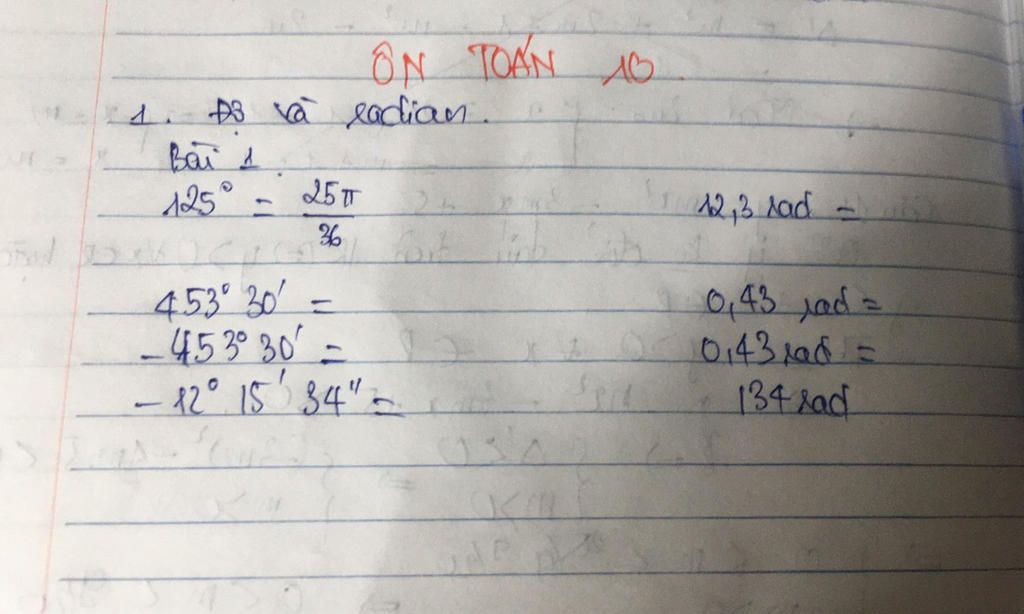 ÔN TOÁN 10.
1. Độ và radian.
Bài 1.
125° = 25π/36 12,3 rad =
453° 30' = 0,43 rad =
-453° 30' = 0,43 rad =
-12° 15' 34" = 134 rad